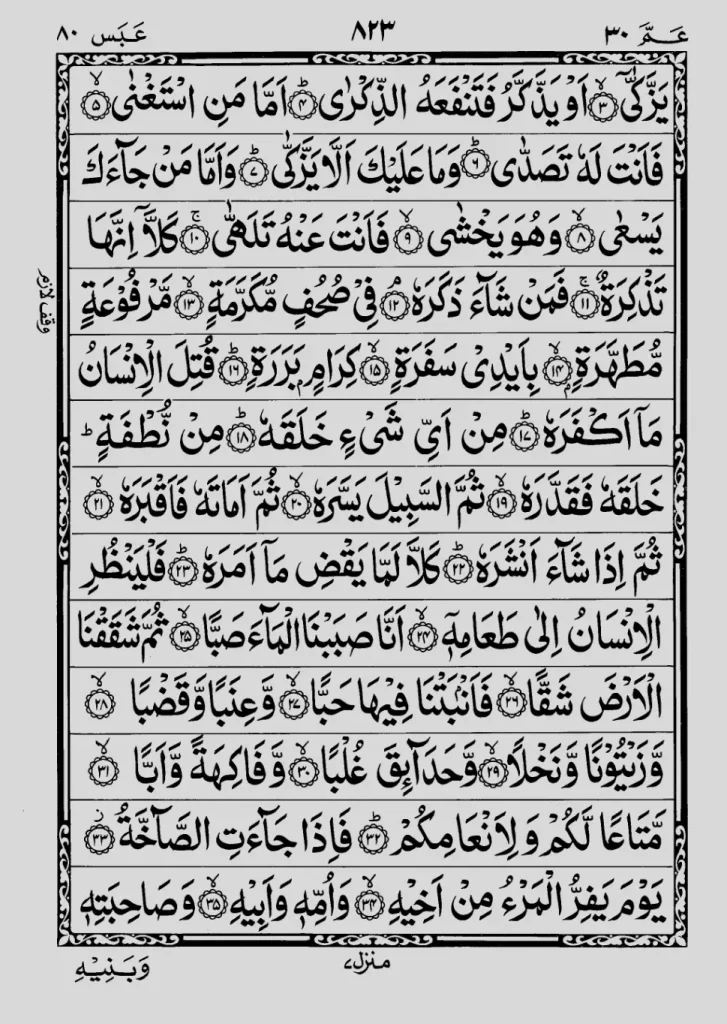 عَمَّ ٣٠ ٨٢٣ عَبَسَ ٨٠
يَزَّكّٰۤى ۙ﴿٣﴾ اَوْ يَذَّكَّرُ فَتَنْفَعَهُ الذِّكْرٰى ؕ﴿٤﴾ اَمَّا مَنِ اسْتَغْنٰى ۙ﴿٥﴾
فَاَنْتَ لَهٗ تَصَدّٰى ؕ﴿٦﴾ وَمَا عَلَيْكَ اَلَّا يَزَّكّٰى ؕ﴿٧﴾ وَاَمَّا مَنْ جَآءَكَ
يَسْعٰى ۙ﴿٨﴾ وَهُوَ يَخْشٰى ۙ﴿٩﴾ فَاَنْتَ عَنْهُ تَلَهّٰى ۚ﴿١٠﴾ كَلَّاۤ اِنَّهَا
تَذْكِرَةٌ ۚ﴿١١﴾ فَمَنْ شَآءَ ذَكَرَهٗ ۘ﴿١٢﴾ فِيْ صُحُفٍ مُّكَرَّمَةٍ ۙ﴿١٣﴾ مَّرْفُوْعَةٍ
وقف لازم
مُّطَهَّرَةٍۭ ۙ﴿١٤﴾ بِاَيْدِيْ سَفَرَةٍ ۙ﴿١٥﴾ كِرَامٍۭ بَرَرَةٍ ؕ﴿١٦﴾ قُتِلَ الْاِنْسَانُ
مَاۤ اَكْفَرَهٗ ؕ﴿١٧﴾ مِنْ اَيِّ شَيْءٍ خَلَقَهٗ ؕ﴿١٨﴾ مِنْ نُّطْفَةٍ ؕ
خَلَقَهٗ فَقَدَّرَهٗ ۙ﴿١٩﴾ ثُمَّ السَّبِيْلَ يَسَّرَهٗ ۙ﴿٢٠﴾ ثُمَّ اَمَاتَهٗ فَاَقْبَرَهٗ ۙ﴿٢١﴾
ثُمَّ اِذَا شَآءَ اَنْشَرَهٗ ؕ﴿٢٢﴾ كَلَّا لَمَّا يَقْضِ مَاۤ اَمَرَهٗ ؕ﴿٢٣﴾ فَلْيَنْظُرِ
الْاِنْسَانُ اِلٰى طَعَامِهٖۤ ۙ﴿٢٤﴾ اَنَّا صَبَبْنَا الْمَآءَ صَبًّا ۙ﴿٢٥﴾ ثُمَّ شَقَقْنَا
الْاَرْضَ شَقًّا ۙ﴿٢٦﴾ فَاَنْۢبَتْنَا فِيْهَا حَبًّا ۙ﴿٢٧﴾ وَّعِنَبًا وَّقَضْبًا ۙ﴿٢٨﴾
وَّزَيْتُوْنًا وَّنَخْلًا ۙ﴿٢٩﴾ وَّحَدَآئِقَ غُلْبًا ۙ﴿٣٠﴾ وَّفَاكِهَةً وَّاَبًّا ۙ﴿٣١﴾
مَّتَاعًا لَّكُمْ وَلِاَنْعَامِكُمْ ؕ﴿٣٢﴾ فَاِذَا جَآءَتِ الصَّآخَّةُ ۫﴿٣٣﴾
يَوْمَ يَفِرُّ الْمَرْءُ مِنْ اَخِيْهِ ۙ﴿٣٤﴾ وَاُمِّهٖ وَاَبِيْهِ ۙ﴿٣٥﴾ وَصَاحِبَتِهٖ
منزل ٧
وَبَنِيْهِ